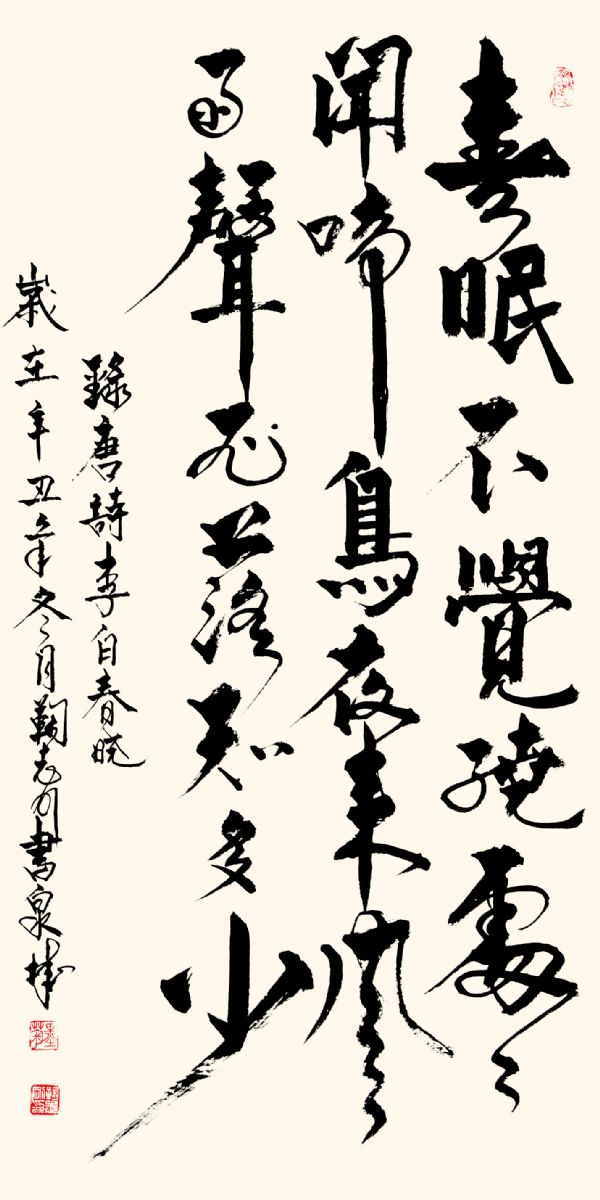 春眠不覺繞處々
聞啼鳥夜來風
雨聲花落知多少
錄唐詩李白春晓
歲在辛丑年冬月鞠志書泉城